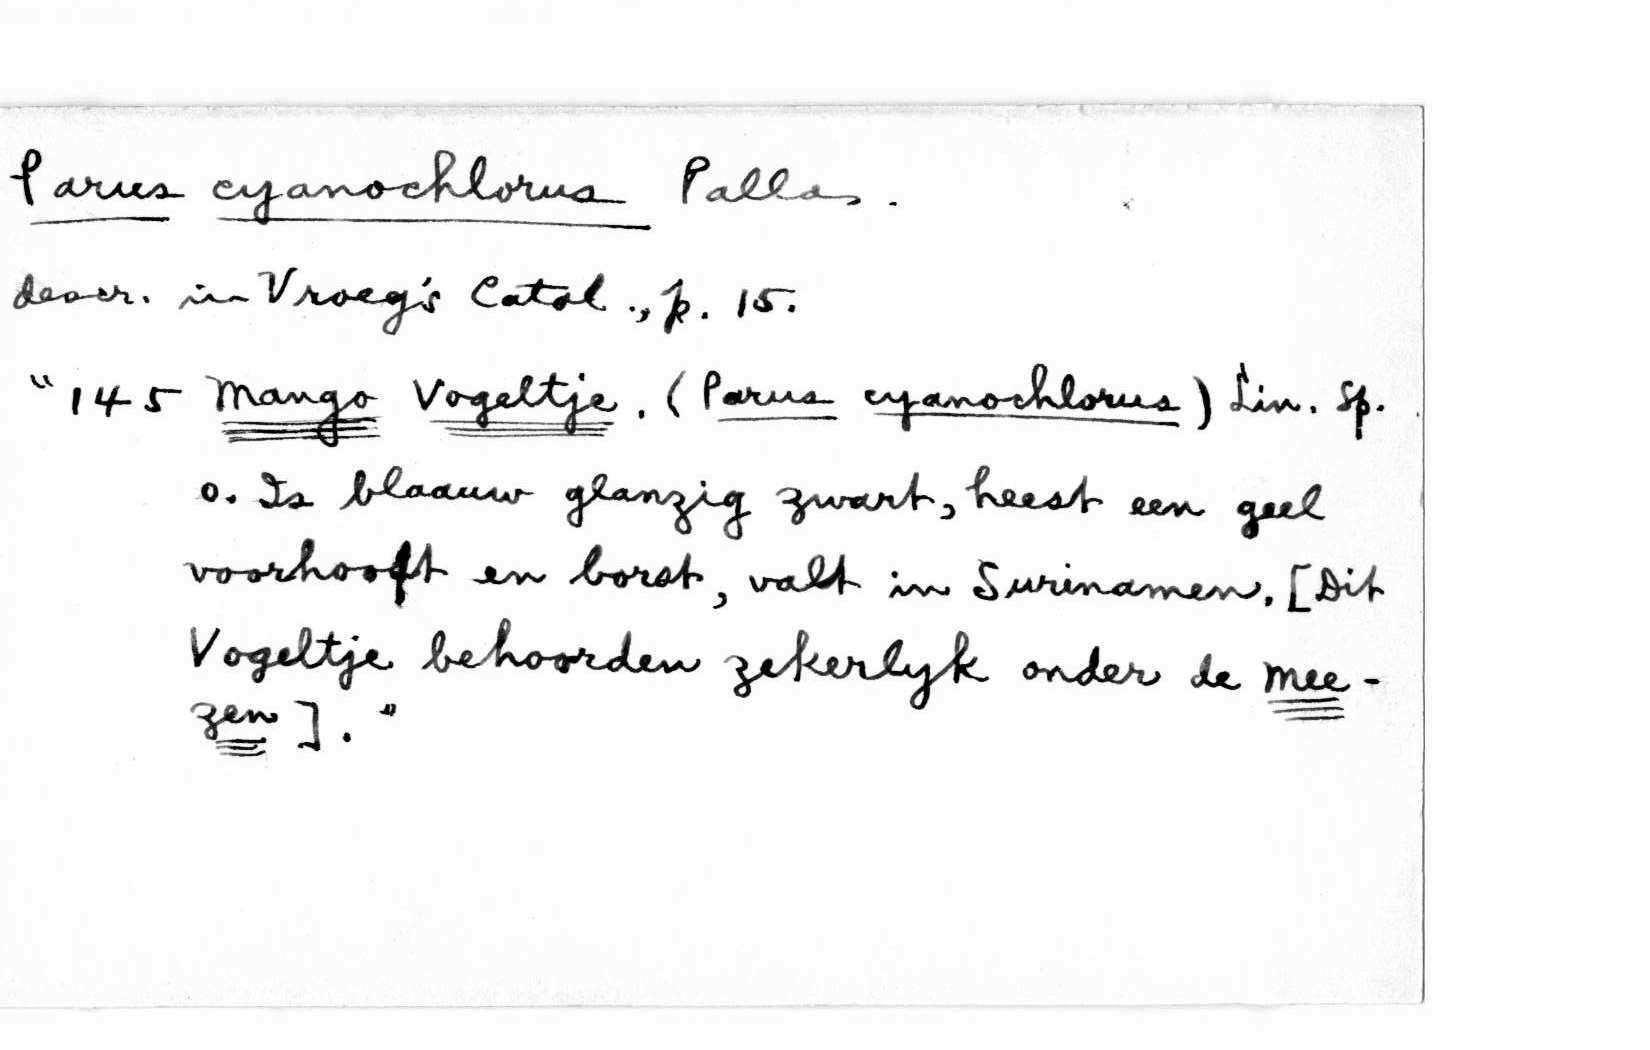 Parus cyanochlorus Pallas.
descr. in Vroeg's Catal., p. 15.
"145 Mango Vogeltje. (Parus cyanochlorus) Lin. Sp.
o. Is blaauw glanzig zwart, heest een geel
voorhooft en borst, valt in Surinamen. [Dit
Vogeltje behoorden zekerlyk onder de Mee-
zen]."